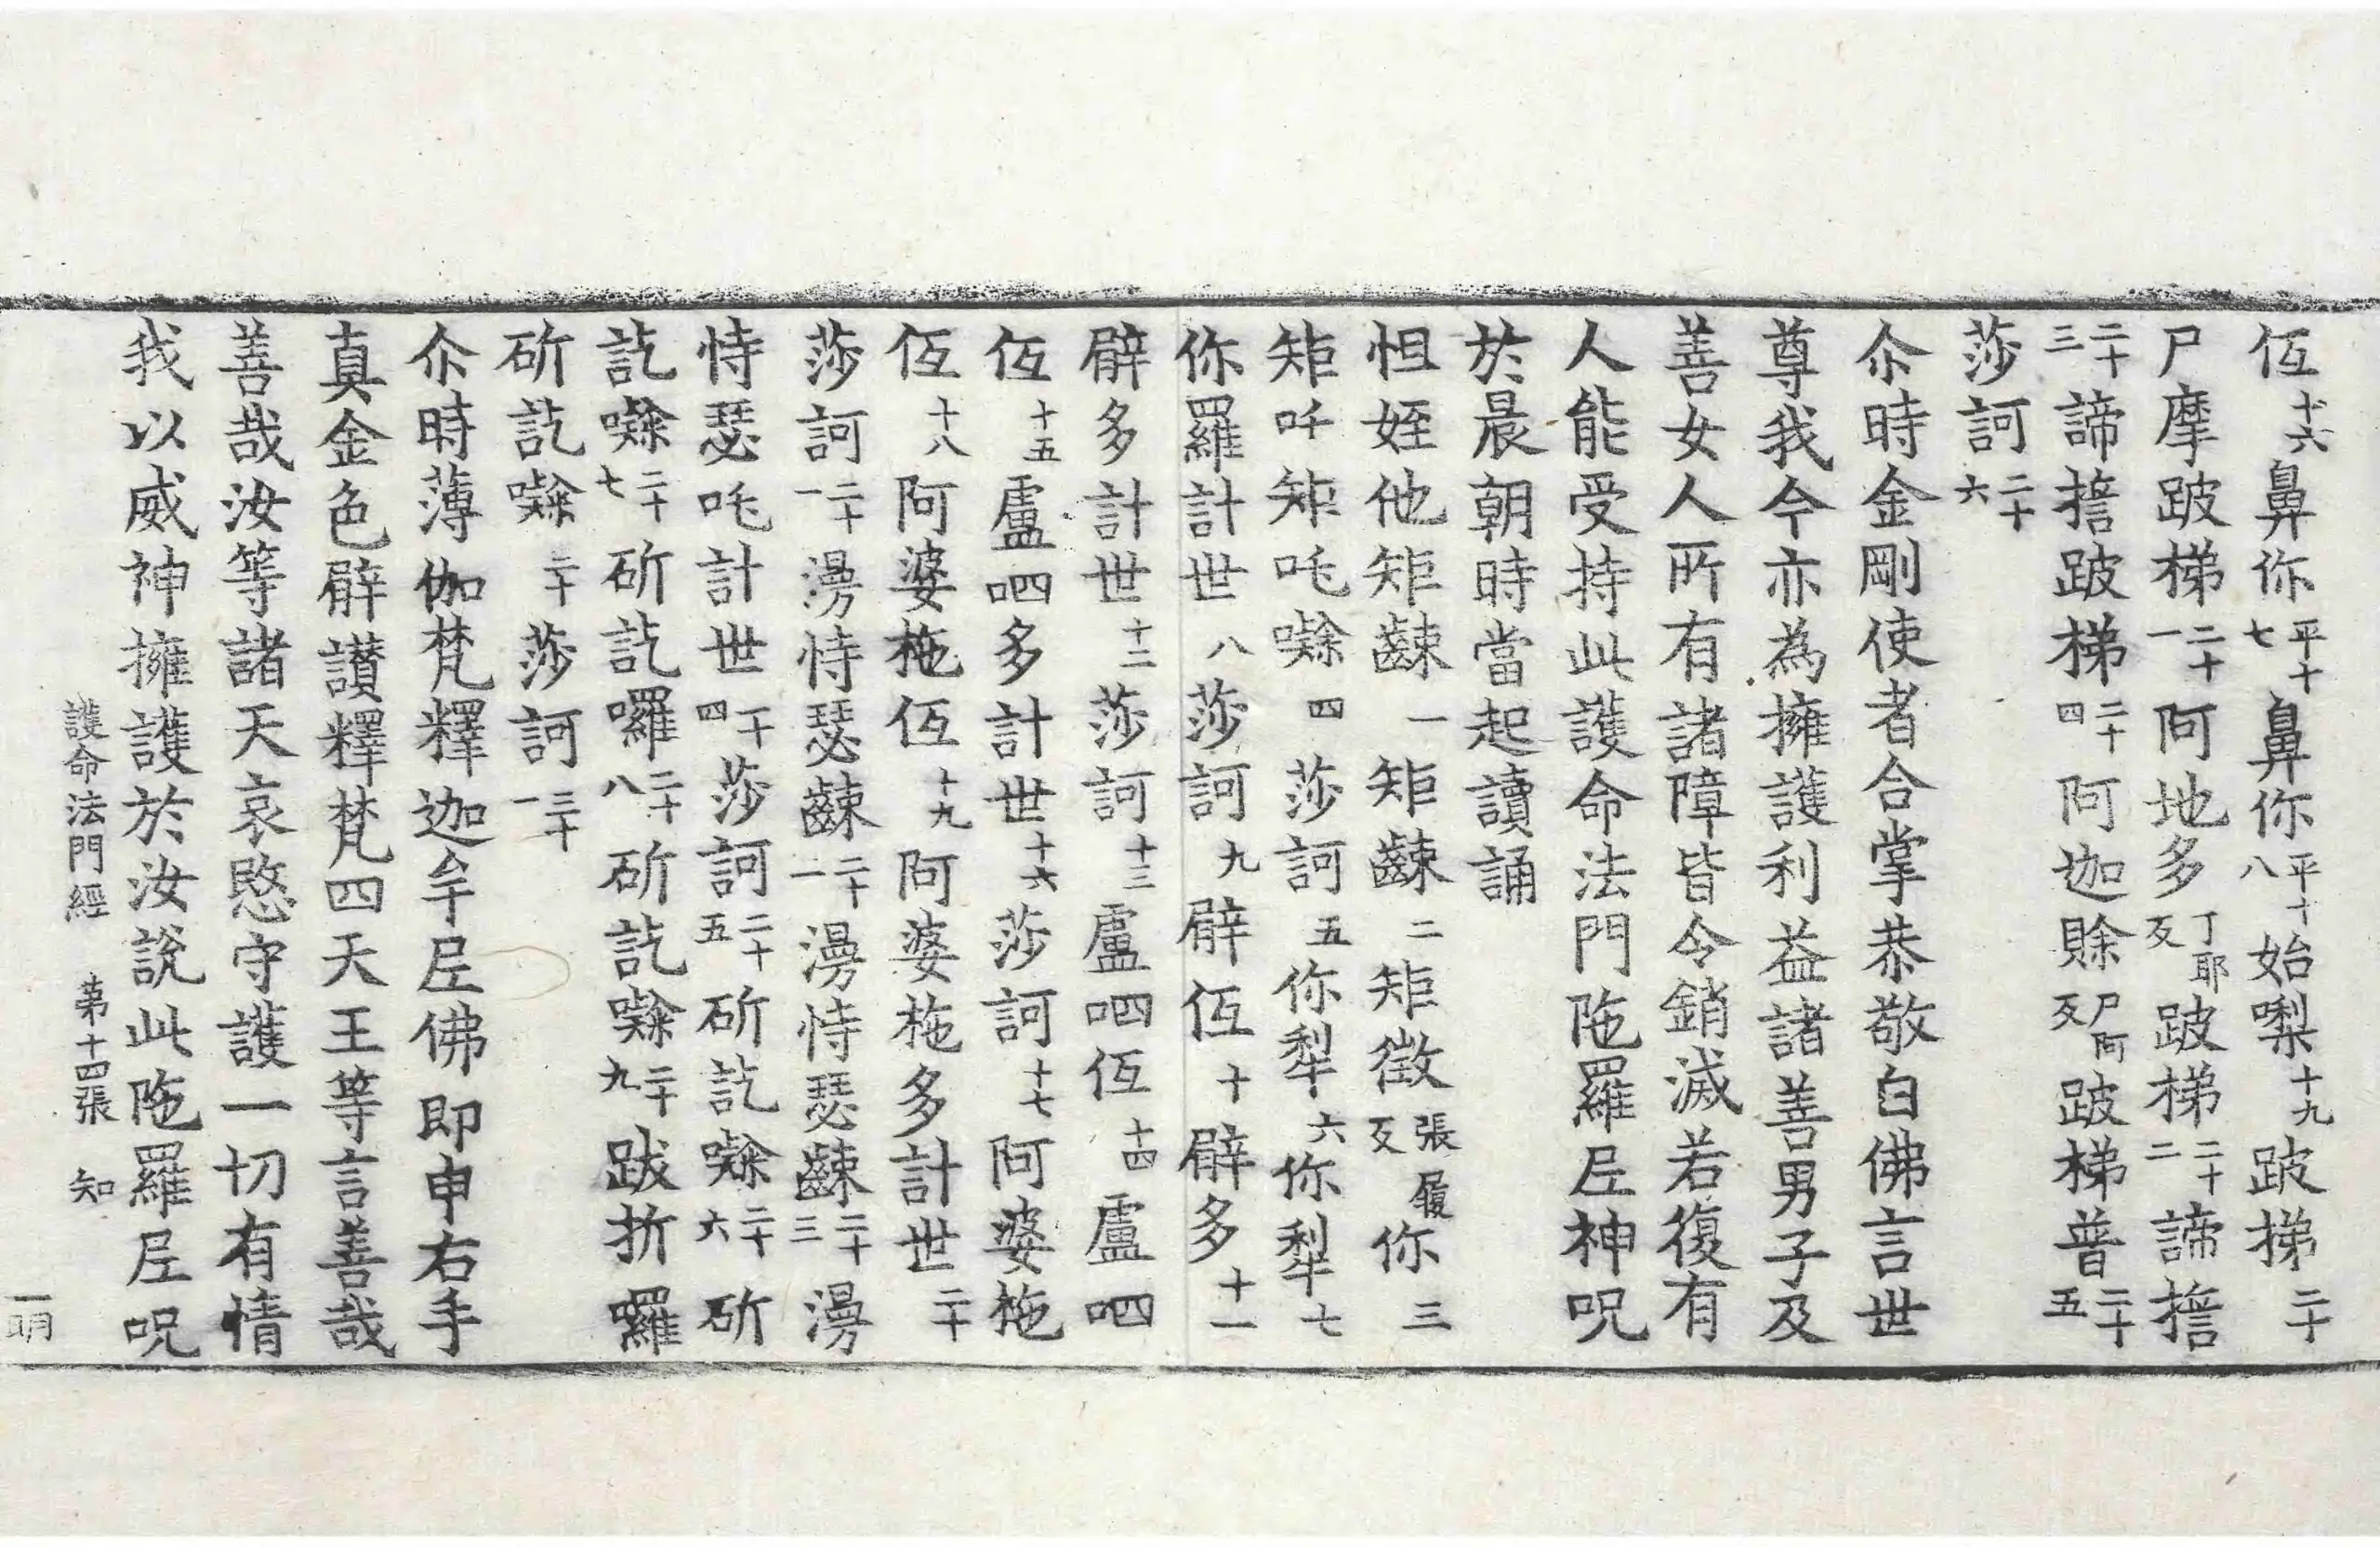 侸十六鼻你平十七鼻你平十八始㗚十九跛梯二十
尸摩跛梯二十一阿地多丁耶反跛梯二十二諦𢭏
二十三諦𢭏跛梯二十四阿迦賒尸阿反跛梯普二十五
莎訶二十六
尒時金剛使者合掌恭敬白佛言世
尊我今亦為擁護利益諸善男子及
善女人所有諸障皆令銷滅若復有
人能受持此護命法門陁羅𡰱神呪
於晨朝時當起讀誦
怛姪他矩䶞一矩䶞二矩徵張履反你三
矩吒矩吒㘑四莎訶五你犁六你犁七
你羅計世八莎訶九辟侸十辟多十一
辟多計世十二莎訶十三盧呬侸十四盧呬
侸十五盧呬多計世十六莎訶十七阿婆柂
侸十八阿婆柂侸十九阿婆柂多計世二十
莎訶二十一漫恃瑟䶞二十一漫恃瑟䶞二十三漫
恃瑟吒計世二十四莎訶二十五斫訖㘑二十六斫
訖㘑二十七斫訖囉二十八斫訖㘑二十九跋折囉
斫訖㘑三十莎訶三十一
尒時薄伽梵釋迦牟𡰱佛即申右手
真金色臂讃釋梵四天王等言善哉
善哉汝等諸天哀愍守護一切有情
我以威神擁護於汝說此陁羅𡰱呪
護命法門經 第十四張 知